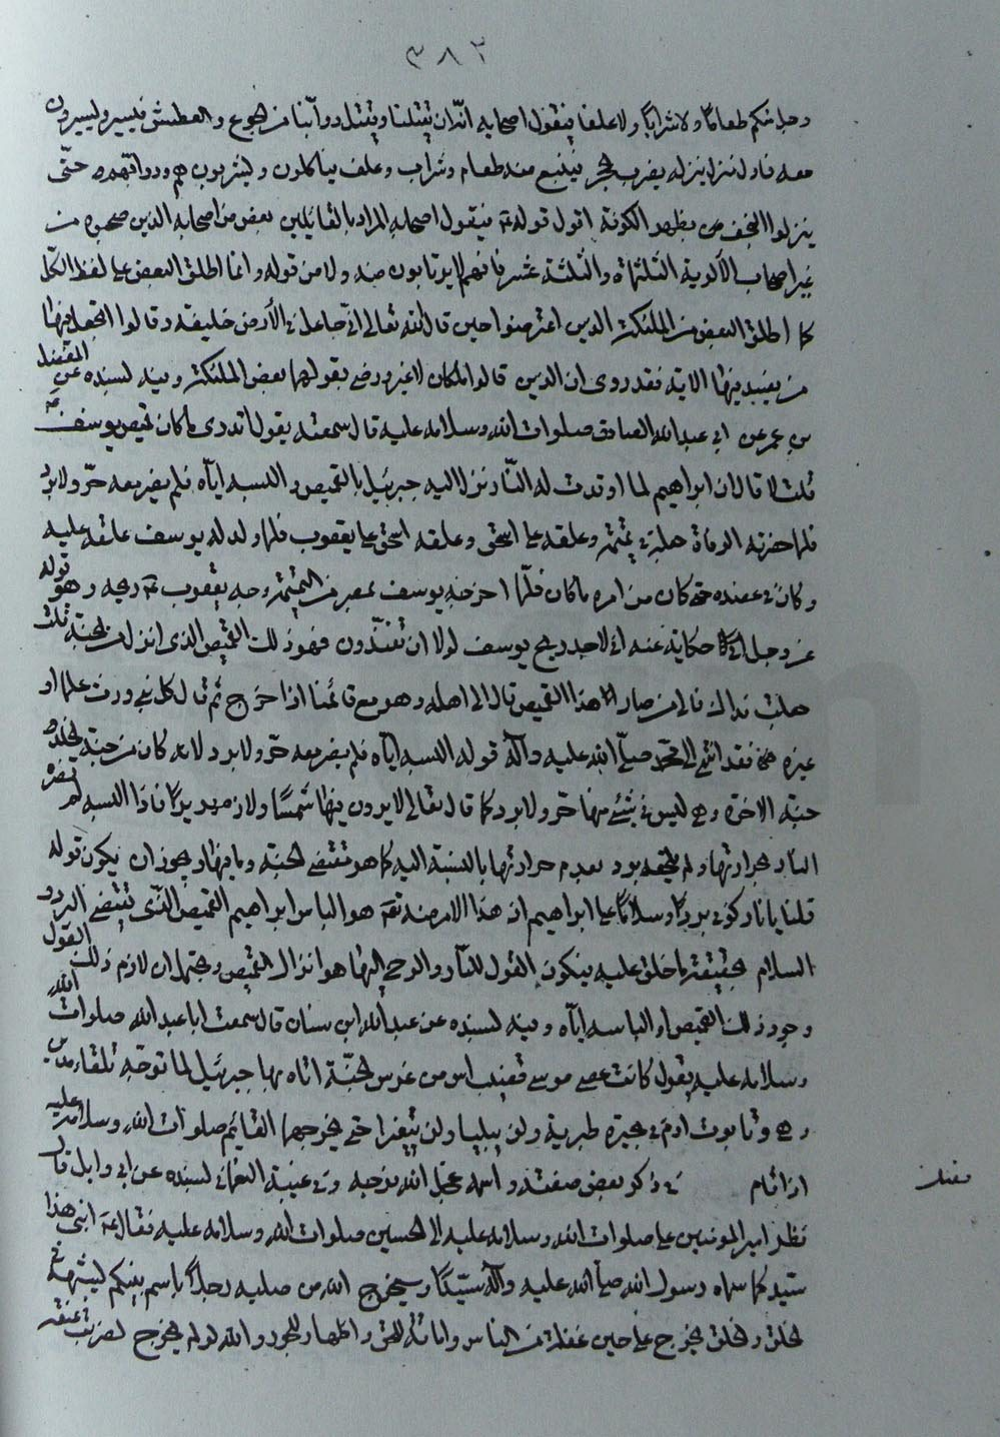 ٣٨٢
وحل منكم طعاما ولا شرابا ولا علفا فيقول اصحابه انه يريد ان يقتلنا ويقتل دوابنا من الجوع والعطش فيسير ويسيرون
معه فاول منزل ينزله يضرب الحجر فينبع منه طعام وشراب وعلف فياكلون ويشربون هم ودوابهم حتى
ينزلوا النجف من بظهر الكوفة اقول قوله ع فيقول اصحابه المراد بالقائلين بعض من اصحابه الذين صحبوه من
غير اصحاب الألوية الثلثمائة والثلثة عشر فانهم لا يرتابون منه ولا من قوله وانما اطلق البعض على لفظ الكل
كما اطلق البعض من الملئكة الذين اعترضوا حين قال الله تعالى اني جاعل في الأرض خليفة وقالوا اتجعل فيها
من يفسد فيها الاية فقد روى ان الذين قالوا ملكان لا غير ورضي بقولهما بعض الملئكة وفيه بسنده عن المفضل
بن عمر عن ابي عبد الله الصادق صلوات الله وسلامه عليه قال سمعته يقول اتدري ما كان قميص يوسف ع
قلت لا قال ان ابراهيم لما اوقدت له النار نزل اليه جبرئيل بالقميص والبسه اياه فلم يضر معه حر ولا برد
فلما حضرته الوفاة جعله في تميمة وعلقه على اسحق وعلقه اسحق على يعقوب فلما ولد له يوسف علقه عليه
وكان في عضده حتى كان من امره ما كان فلما اخرجه يوسف بمصر من التميمة وجد يعقوب ع ريحه وهو قوله
عز وجل حكاية عنه اني لاجد ريح يوسف لولا ان تفندون فهو ذلك القميص الذي انزل من الجنة قلت
جعلت فداك فالى من صار هذا القميص قال الى اهله وهو مع قائمنا اذا خرج ثم قال كل نبي ورث علما او
غيره فقد انتهى الى محمد صلى الله عليه وآله قوله البسه اياه فلم يضر معه حر ولا برد لانه كان من جنة الخلد
جنة الاخرة وهي ليس في شئ منها حر ولا برد كما قال تعالى لا يرون فيها شمسا ولا زمهريرا فاذا البسه لم تضره
النار بحرارتها ولم يلحقه برد بعدم حرارتها بالنسبة اليه كما هو مقتضى الجنة وما فيها ويجوز ان يكون قوله
قلنا يا نار كوني بردا وسلاما على ابراهيم ان هذا الامر منه تع هو الباس ابراهيم القميص الذي يقتضي البرد و
السلام بحقيقة ما خلق عليه فيكون القول للنار والوحي اليها هو انزال القميص ويحتمل ان لازم ذلك القول
وجود ذلك القميص او الباسه اياه وفيه بسنده عن عبد الله بن سنان قال سمعت ابا عبد الله صلوات الله
وسلامه عليه يقول كانت عصى موسى قضيب اس من غرس الجنة اتاه بها جبرئيل لما توجه تلقاء مدين
وهي وتابوت ادم في بحيرة طبرية ولن يبليا ولن يتغيرا حتى يخرجهما القائم صلوات الله وسلامه عليه
اذا قام في ذكر بعض صفته واسمه عجل الله فرجه وفي غيبة النعماني بسنده عن ابي وايل قال
نظر امير المؤمنين علي صلوات الله وسلامه عليه الى الحسين صلوات الله وسلامه عليه فقال ع ابني هذا
سيد كما سماه رسول الله صلى الله عليه وآله سيدا وسيخرج الله من صلبه رجلا باسم نبيكم يشبهه في
الخلق والخلق يخرج على حين غفلة من الناس واماتة للحق واظهار للجور والله لو لم يخرج لضربت عنقه
فصل